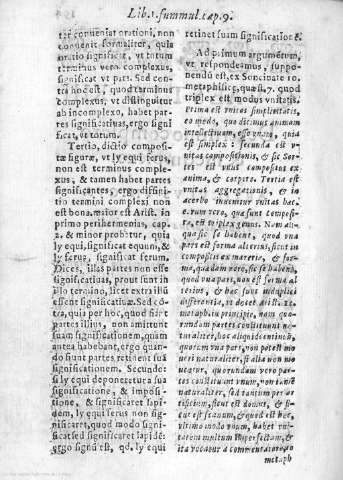 Lib. 1. summul. cap. 9.
tæ conuenit orationi, non
conuenit formaliter, quia
oratio significat, vt totum
terminus vero complexus,
significat vt pars. Sed con-
tra hoc est, quod terminus
complexus, vt distinguitur
ab incomplexo, habet par-
tes significatiuas, ergo signi
ficat, vt totum.
Tertio, dictio composi-
tæ figuræ, vt ly equi ferus,
non est terminus comple-
xus, & tamen habet partes
significantes, ergo diffini-
tio termini complexi non
est bona. maior est Arist. in
primo perihermenias, cap.
2. & minor probatur, quia
ly equi, significat equum, &
ly ferus, significat ferum.
Dices, illas partes non esse
significatiuas, prout sunt in
illo termino, licet extra illũ
essent significatiuæ. Sed cõ-
tra, quia per hoc, quod sint
partes illius, non amittunt
suam significationem, quam
antea habebant, ergo quan-
do sunt partes, retinent sua
significationem. Secundo:
si ly equi deponeret sua sua
significatione, & imposi-
tione, & significaret lapi-
dem, ly equi ferus non sig-
nificaret, quod modo signi-
ficat sed significaret lapidẽ:
ergo signũ est, qd, ly equi
retinet suam significationẽ.
Ad primum argumentum,
vt respondeamus, suppo-
nendũ est, ex Soncinate 10.
metaphisicę, quæst. 7. quod
triplex est modus vnitatis.
Prima est vnitas simplicitatis,
eo modo, quo dicimus animam
intellectiuam, esse vnam, quia
est simplex: secunda est v-
nitas compositionis, & sic Sor-
tes est vnus compositus ex
anima, & corpore. Tertia est
vnitas aggregationis, & in
aceruo inuenitur vnitas hæc.
rum vero, quæ sunt composi-
ta, est triplex genus. Nam ali-
qua sic se habent, quod vna
pars est forma alterius, sicut in
compositis ex materia, & for-
ma, quædam vero, sic se habent,
quod vna pars, non est forma al
terius, & hæc sunt
differentia, vt docet Arist.
metaph. in principio, nam quo-
rundam partes constituunt na-
turaliter, hoc aliquod denominãs,
quorum vna pars, non potest mo
ueri naturaliter, si alia non mo
ueatur, quorundam vero par-
tes constituunt vnum, non
naturaliter, sed tantum per ar
tificium, sicut est domus, & si-
cut est scanum, & quod est hoc,
vltimo modo vnum, habet vni-
tatem multum imperfectam, &
ita vocatur a commentatore,
metaph